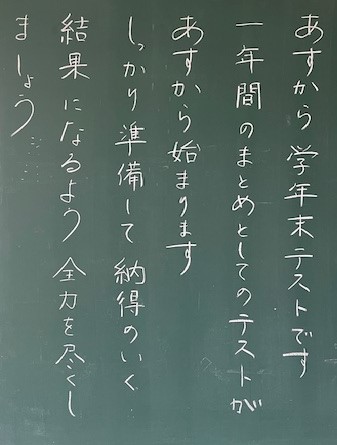 あすから 学年末テストです
一年間のまとめとしてのテストが
あすから始まります
しっかり準備して 納得のいく
結果になるよう 全力を尽くし
ましょう